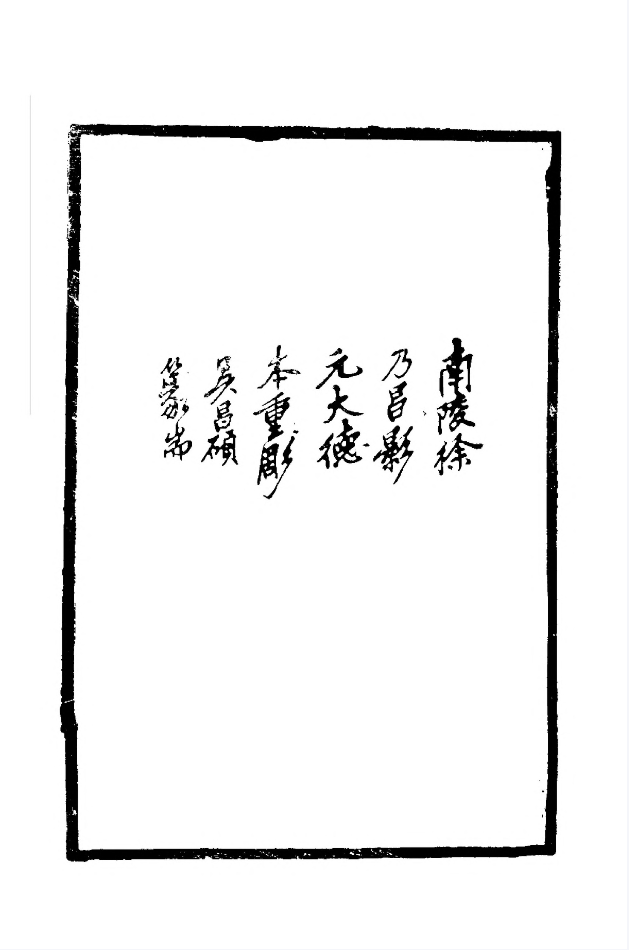 南陵徐
乃昌影
元大德
本重彫
吳昌碩
篆耑